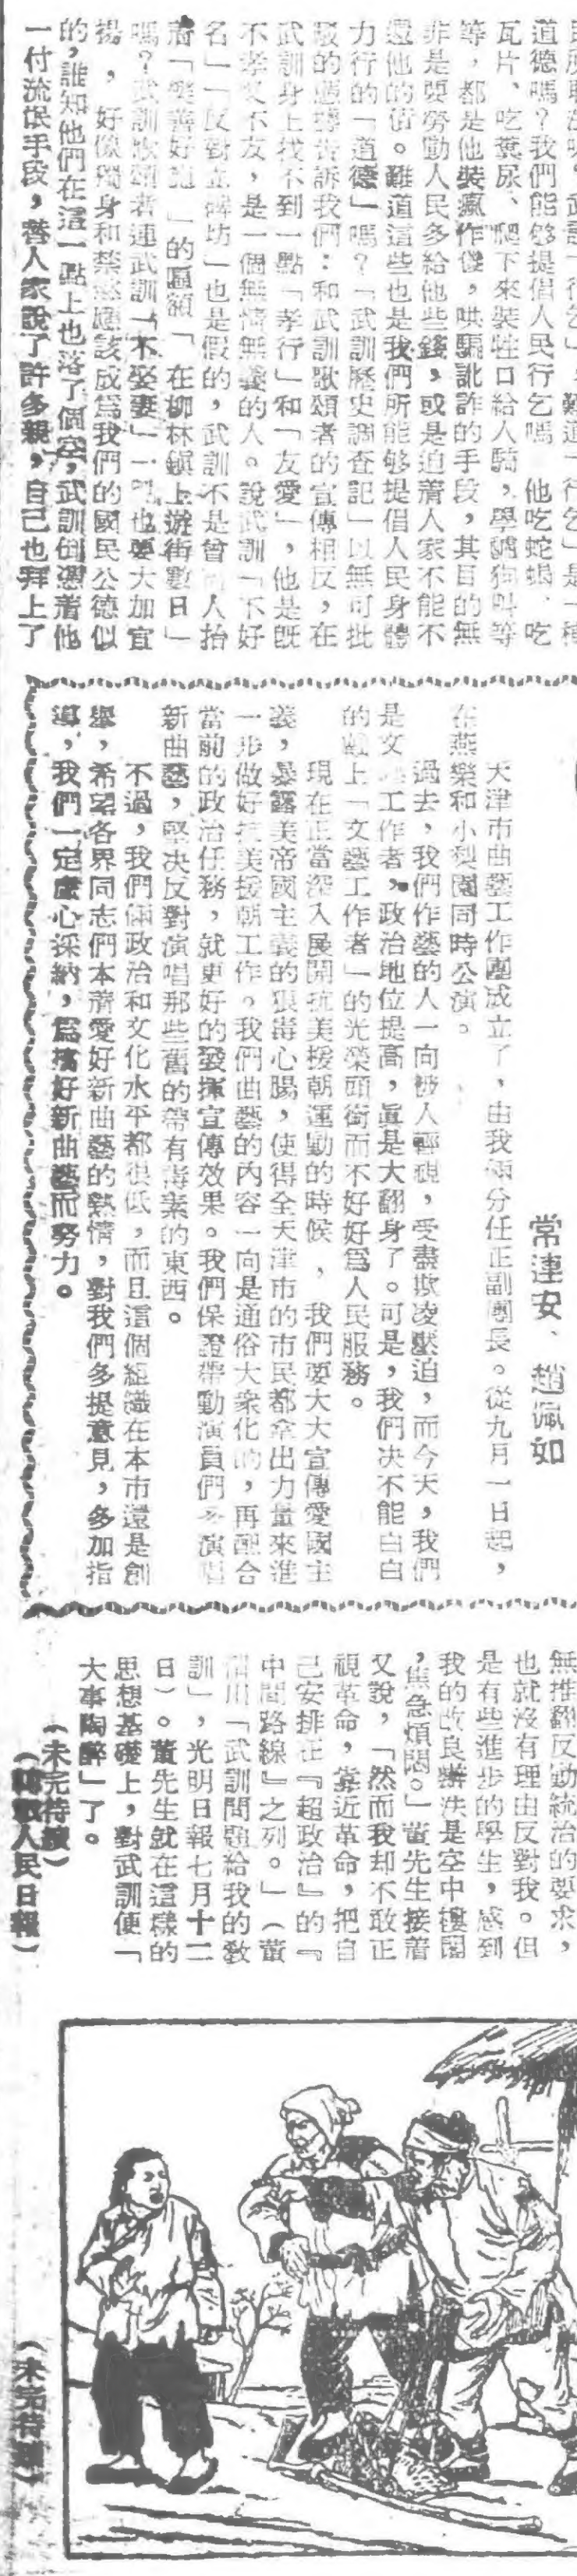 道德嗎？我們能够提倡人民行乞嗎　他吃蛇蝎、吃
瓦片、吃糞尿、爬下來裝牲口給人騎，學貓狗叫等
等，都是他裝瘋作傻，哄騙訛詐的手段，其目的無
非是要勞動人民多給他些錢，或是迫着人家不能不
還他的債。難道這些也是我們所能够提倡人民身體
力行的「道德」嗎？「武訓歷史調查記」以無可批
駁的憑據告訴我們：和武訓歌頌者的宣傳相反，在
武訓身上找不到一點「孝行」和「友愛」，他是旣
不孝又不友，是一個無情無義的人。說武訓「不好
名」「反對立牌坊」也是假的，武訓不是曾　人抬
着「樂善好施」的匾額「在柳林鎮上遊街數日」
嗎？武訓歌頌者連武訓「不娶妻」一　也要大加宣
揚，好像獨身和禁慾應該成爲我們的國民公德似
的，誰知他們在這一點上也落了個空，武訓倒憑着他
一付流氓手段，替人家說了許多親，自己也拜上了
常連安、趙佩如
天津市曲藝工作團成立了，由我倆分任正副團長。從九月一日起，
在燕樂和小梨園同時公演。
過去，我們作藝的人一向被人輕視，受盡欺凌壓迫，而今天，我們
是文　工作者，政治地位提高，眞是大翻身了。可是，我們决不能白白
的戴上「文藝工作者」的光榮頭銜而不好好爲人民服務。
現在正當深入展開抗美援朝運動的時候，我們要大大宣傳愛國主
義，暴露美帝國主義的狠毒心腸，使得全天津市的市民都拿出力量來進
一步做好抗美援朝工作。我們曲藝的內容一向是通俗大衆化的，再配合
當前的政治任務，就更好的發揮宣傳效果。我們保證帶動演員們多演唱
新曲藝，堅决反對演唱那些舊的帶有毒素的東西。
不過，我們倆政治和文化水平都很低，而且這個組織在本市還是創
舉，希望各界同志們本着愛好新曲藝的熱情，對我們多提意見，多加指
導，我們一定虛心採納，爲搞好新曲藝而努力。
無推翻反動統治的要求，
也就沒有理由反對我。但
是有些進步的學生，感到
我的改良辦法是空中樓閣
，焦急煩悶。」董先生接着
又說，「然而我却不敢正
視革命，靠近革命，把自
己安排在『超政治』的『
中間路線』之列。」（董
渭川「武訓問題給我的教
訓」，光明日報七月十二
日）。董先生就在這樣的
思想基礎上，對武訓便「
大事陶醉」了。
（未完待續）
（轉載人民日報）
（未完待續）